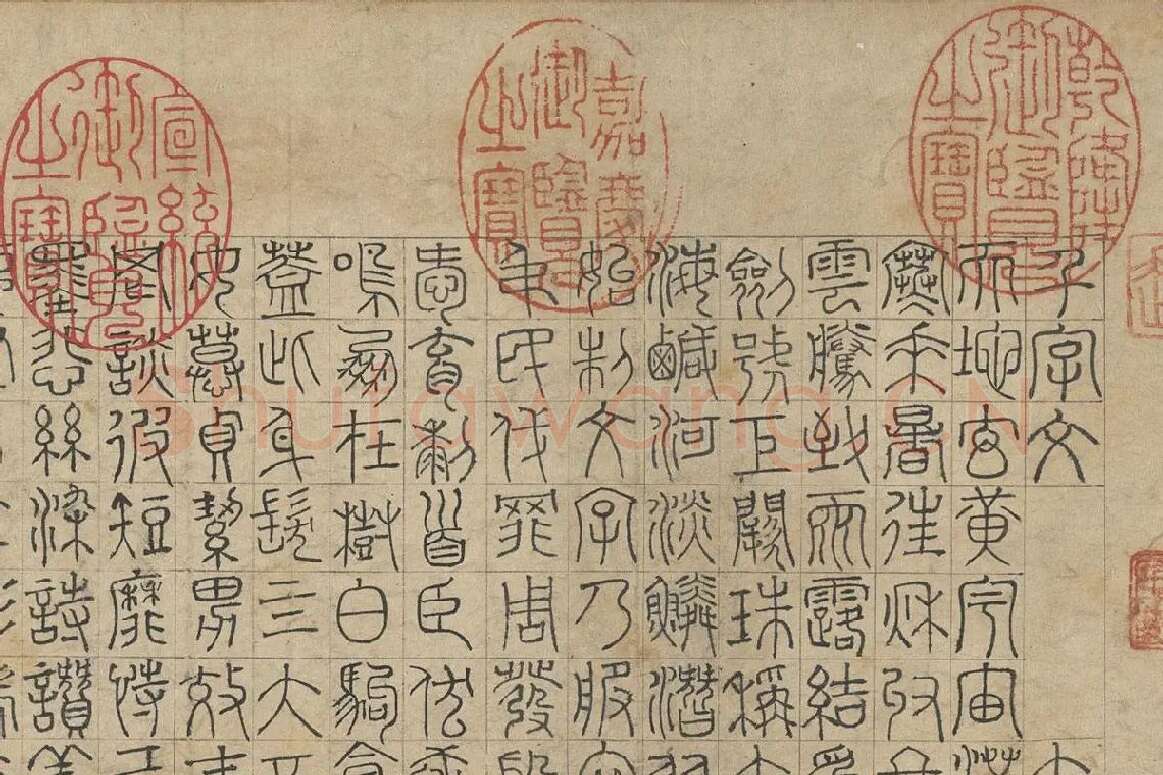 乾隆御覽之寶
嘉慶御覽之寶
宣統御覽之寶
千字文
天地玄黃宇宙洪
寒來暑往秋收冬
雲騰致雨露結為
劍號巨闕珠稱夜
海鹹河淡鱗潛羽
始制文字乃服衣
弔民伐罪周發殷
愛育黎首臣伏戎
鳴鳳在樹白駒食
蓋此身髮四大五
女慕貞絜男效才
罔談彼短靡恃己
墨悲絲染詩讚羔
Shufawang.CN